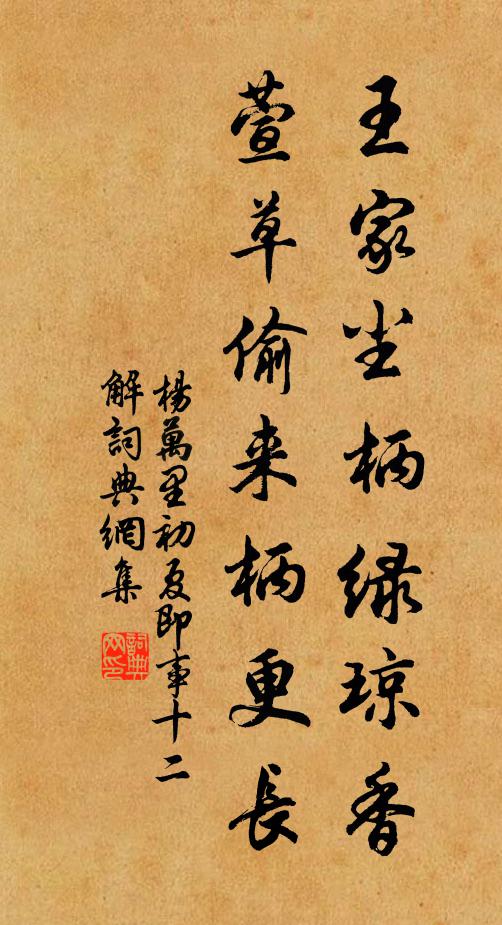 王家尘柄绿琼香
萱草偷来柄更長
楊萬里初夏即事十二
解詞典網集
詞典网印